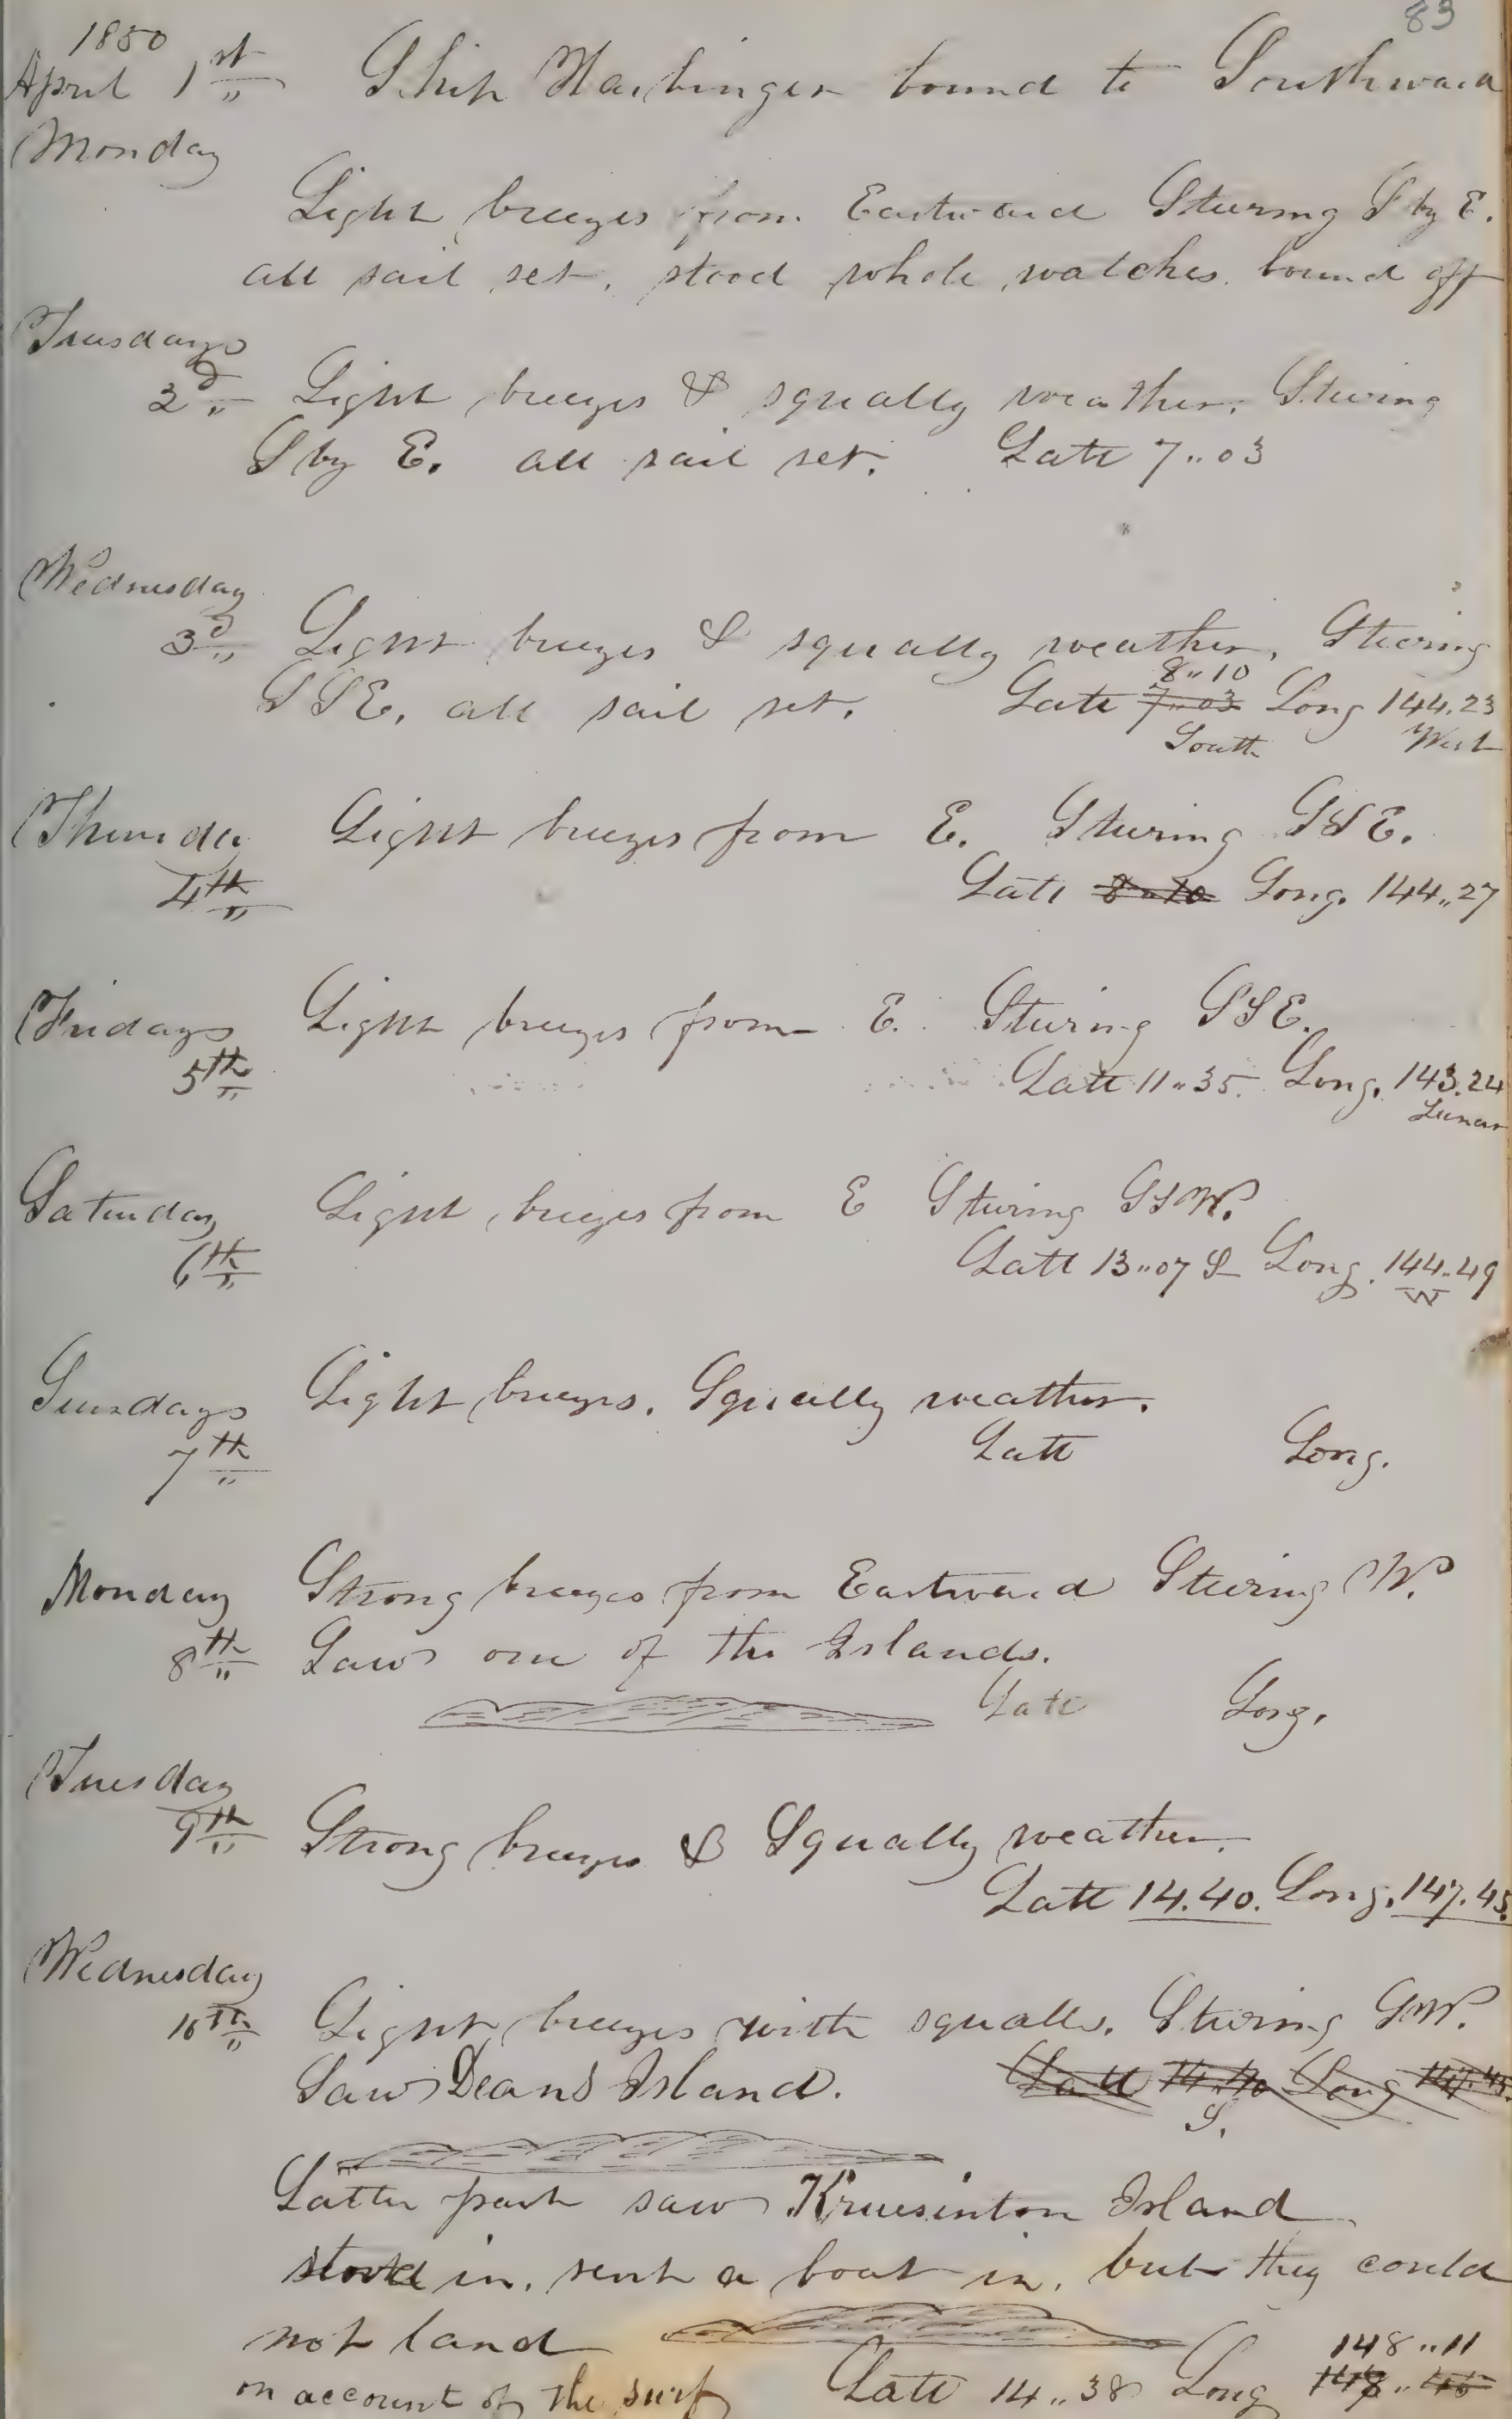 83
1850
April 1st Ship Harbinger bound to Southward
Monday
Light breezes from Eastward Steering S by E.
all sail set, stood whole watches. bound off
Tuesday
2d Light breezes & squally weather. Stering
S by E. all sail set. Latt 7..03
Wednesday
3d Light breezes & squally weather, Steering
8..10
SSE, all sail set. Latt 7..03 Long 144.23
South West
Thursday Light breezes from E. Steering SSE.
4th Latt 8..10 Long. 144..27
Friday Light breezes from E. Steering SSE.
5th Latt 11..35. Long. 143.24
Lunar
Saturday Light breezes from E Steering SSW.
6th Latt 13..07 S Long. 144..49
W
Sunday Light breezes. Squally weather.
7th Latt Long.
Monday Strong breezes from Eastward Steering W.
8th Saw one of the Islands.
Latt Long.
Tuesday
9th Strong breezes & Squally weather.
Latt 14.40. Long. 147.45.
Wednesday
10th Light breezes with squalls. Steering SW.
Saw Deans Island. Latt 14..40 Long 147.45.
S.
Latter part saw Kruesinton Island
stood in, sent a boat in, but they could
not land 148..11
on account of the surf Latt 14..38 Long